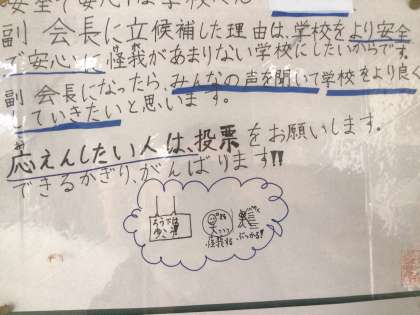 安全で安心な学校
副会長に立候補した理由は、学校をより安全
で安心に怪我があまりない学校にしたいからです。
副会長になったら、みんなの声を聞いて学校をより良く
していきたいと思います。
応えんしたい人は、投票をお願いします。
できるかぎり、がんばります!!
ろう下は
歩こう
怪我する
ぶつかる!!